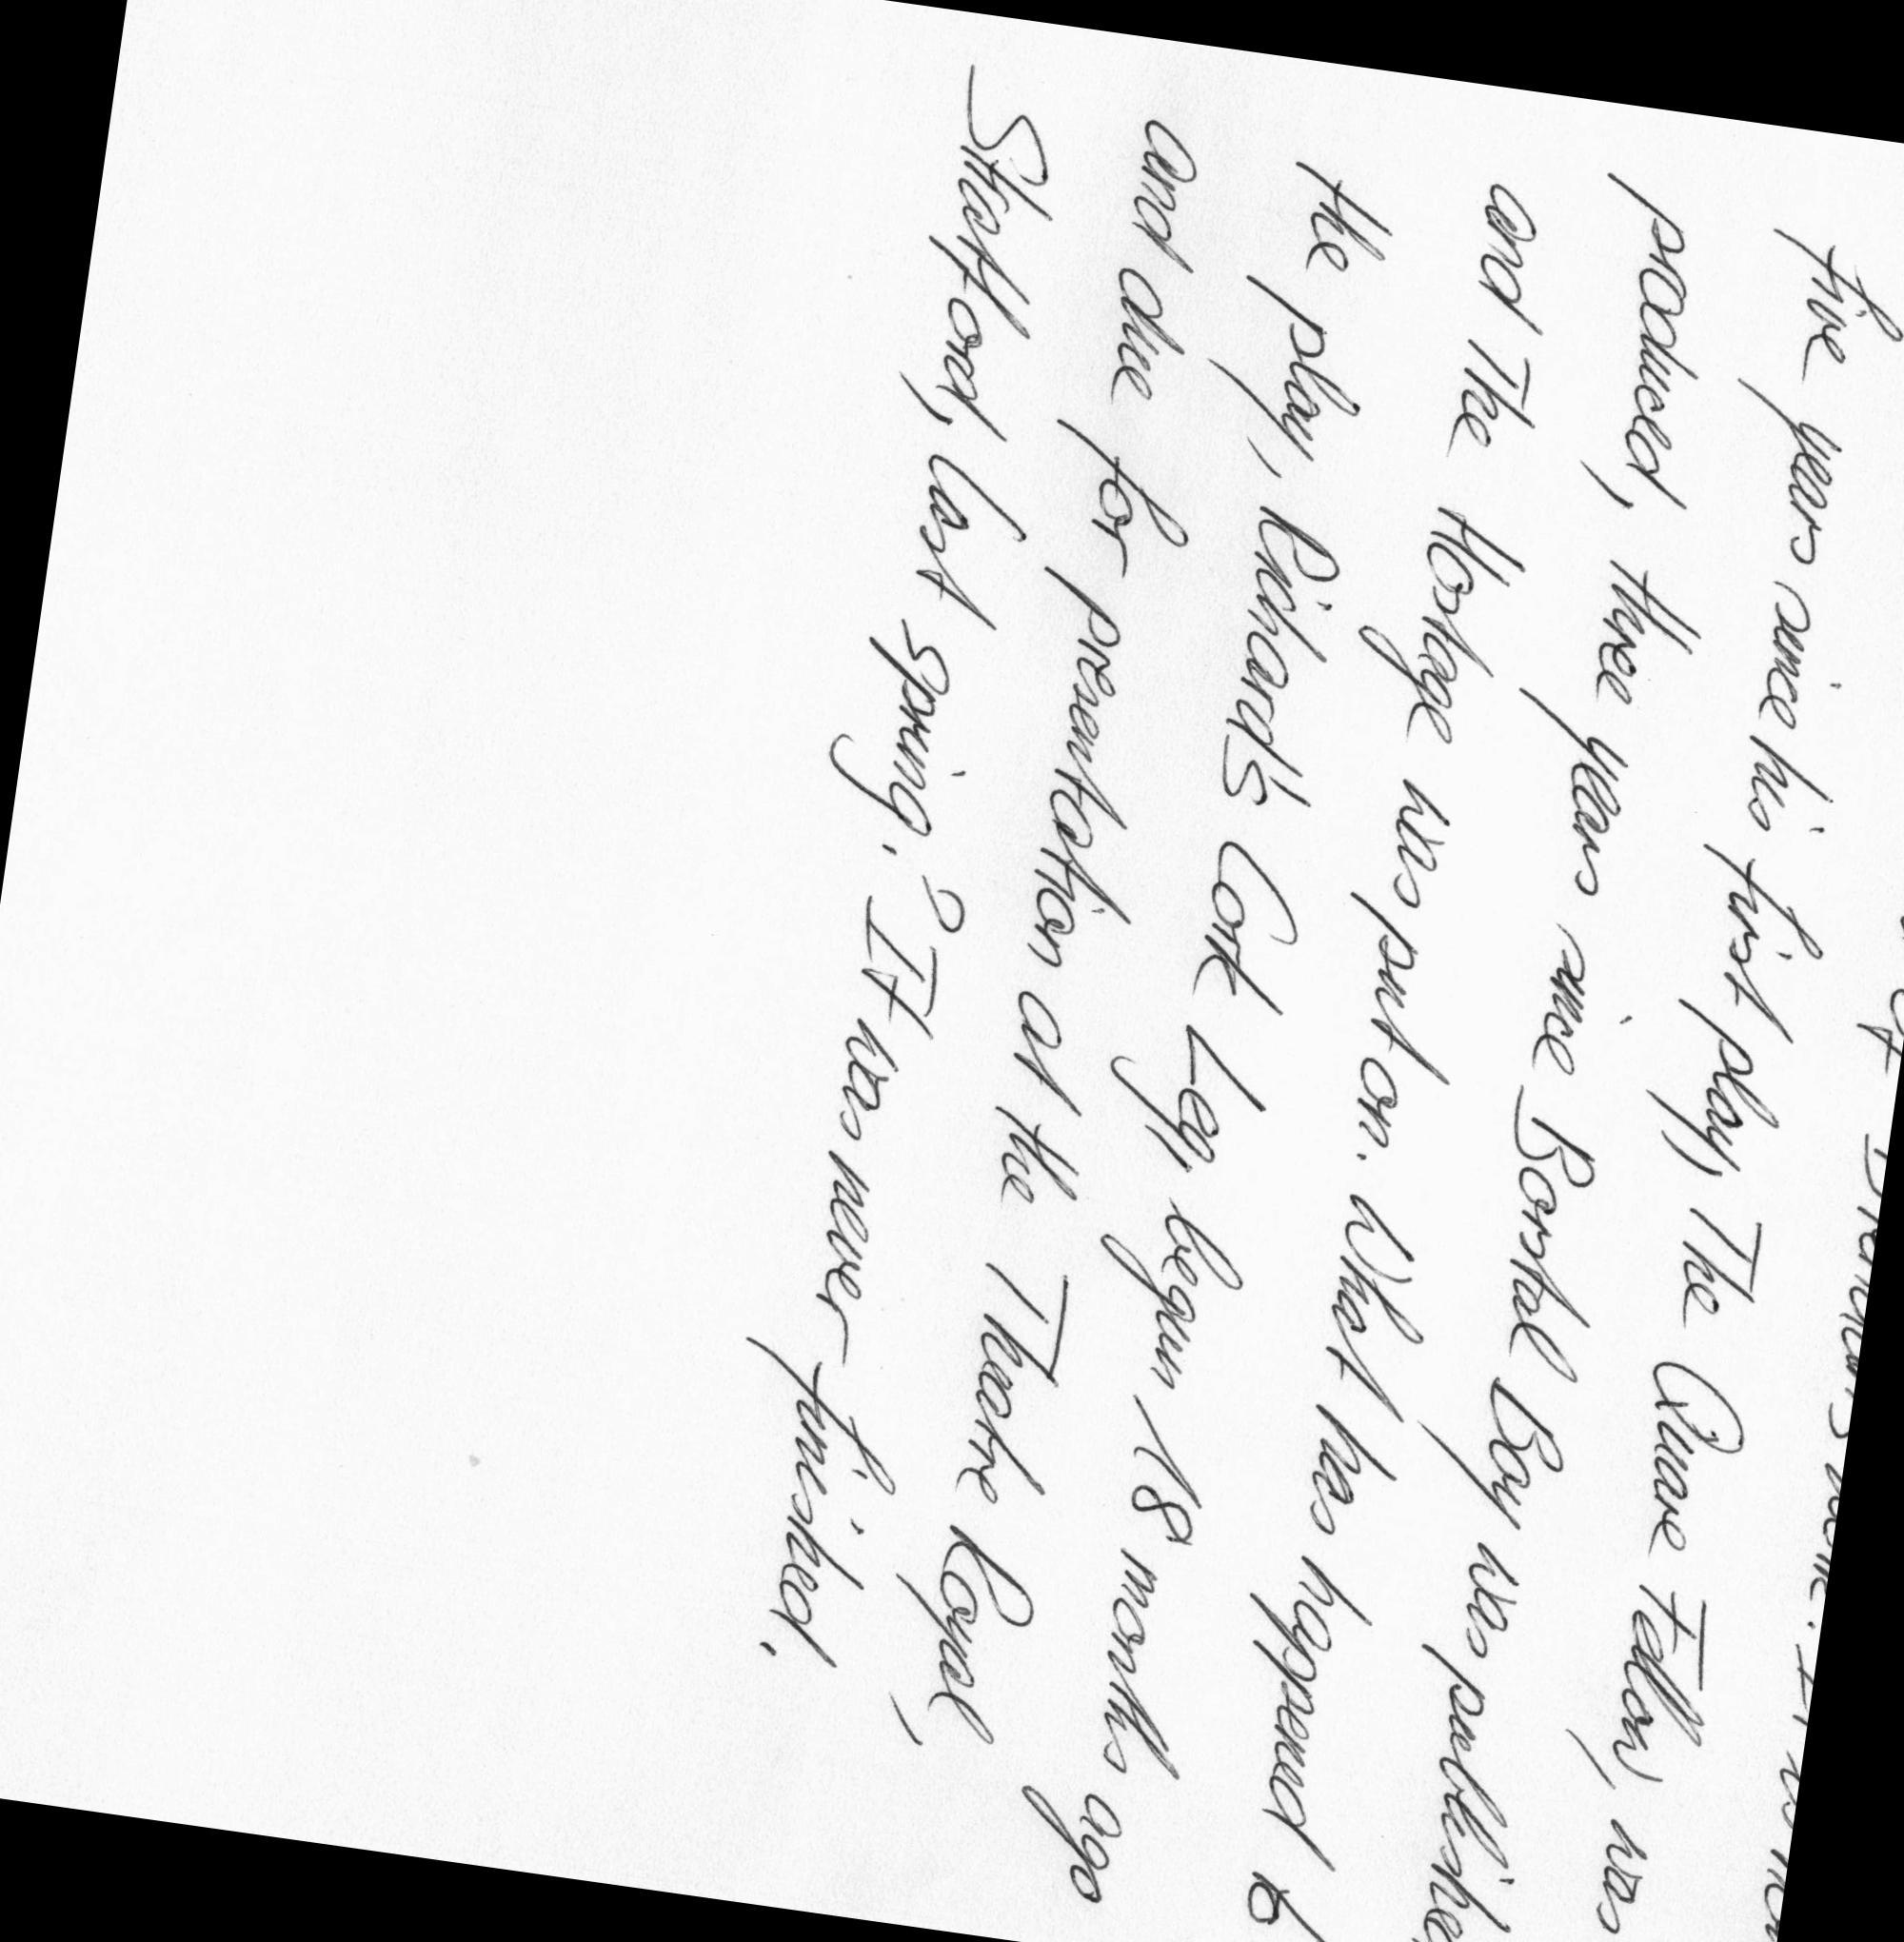 five years since his first play, The Quare Fellow, was
produced, three years since Borstal Boy was
and The Hostage was put on. What has happened to
the play, Richard's Cork Leg, begun 18 months ago
and due for presentation at the Theatre Royal,
Stratford, last spring.? It was never finished.